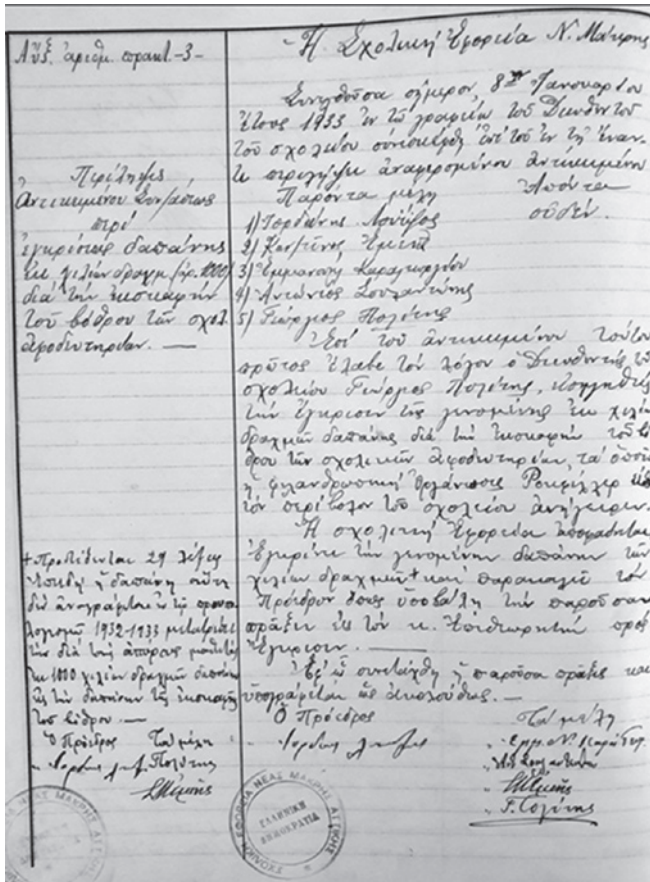 Αὔξ. ἀριθμ. πρακτ. -3-
Περίληψις
Ἀντικειμένου Συν/σεως
περὶ
ἐγκρίσεως δαπάνης
ἐκ χιλίων δραχμ. (δρ. 1000)
διὰ τὴν ἐκσκαφὴν
τοῦ βόθρου τῶν σχολ.
ἀφοδευτηρίων. —
+ Προστίθενται 29 λέξεις
ἐπειδὴ ἡ δαπάνη αὕτη
δὲν ἀναγράφεται ἐν τῷ προϋπο
λογισμῷ 1932-1933
1000 χιλίων δραχμῶν δαπάνην
εἰς τὴν δαπάνην τῆς ἐκσκαφῆς
τοῦ βόθρου. —
Ὁ Πρόεδρος Τὰ μέλη
- Ἡ Σχολικὴ Ἐφορεία Ν. Μάκρης
Συνελθοῦσα σήμερον, 8ην Ἰανουαρίου
ἔτους 1933 ἐν τῷ γραφείῳ τοῦ Διευθυντοῦ
τοῦ σχολείου συνεσκέφθη ἐπὶ τοῦ ἐν τῇ ἔναν-
τι περιλήψει ἀναφερομένου ἀντικειμένου
Παρόντα μέλη Ἀπόντα
1) Ἰορδάνης οὐδέν.
2) Κων/τῖνος
3) Ἐμμανουὴλ
4) Ἀντώνιος
5) Γεώργιος Πολίτης
Ἐπὶ τοῦ ἀντικειμένου τούτου
πρῶτος ἔλαβε τὸν λόγον ὁ Διευθυντὴς τοῦ
σχολείου Γεώργιος Πολίτης, εἰσηγηθεὶς
τὴν ἔγκρισιν τῆς γενομένης ἐκ χιλίων
δραχμῶν δαπάνης διὰ τὴν ἐκσκαφὴν τοῦ βό
θρου τῶν σχολικῶν ἀφοδευτηρίων, τὰ ὁποῖα
ἡ φιλανθρωπικὴ Ὀργάνωσις Ροκφέλλερ εἰς
τὸν περίβολον τοῦ σχολείου ἀνήγειρεν.
Ἡ σχολικὴ Ἐφορεία ἀποφαίνεται
Ἐγκρίνει τὴν γενομένην δαπάνην τῶν
χιλίων δραχμῶν + καὶ παρακαλεῖ τὸν
Πρόεδρον ὅπως ὑποβάλῃ τὴν παροῦσαν
πρᾶξιν εἰς τὸν κ. Ἐπιθεωρητὴν πρὸς
ἔγκρισιν. —
Ἐφ' ᾧ συνετάχθη ἡ παροῦσα πρᾶξις καὶ
ὑπογράφεται ὡς ἀκολούθως. —
Ὁ Πρόεδρος Τὰ μέλη
ΣΧΟΛΙΚΗ ΕΦΟΡΕΙΑ ΝΕΑΣ ΜΑΚΡΗΣ ΑΤΤΙΚΗΣ
ΕΛΛΗΝΙΚΗ
ΔΗΜΟΚΡΑΤΙΑ